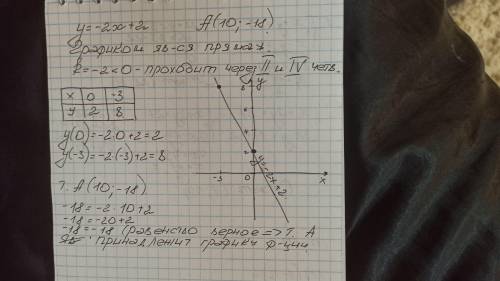 y=-2x+2 A(10;-18)
Графиком яв-ся прямая.
k=-2<0 - проходит через II и IV четв.
x 0 -3
y 2 8
y(0)=-2·0+2=2
y(-3)=-2·(-3)+2=8
т. A(10;-18)
-18=-2·10+2
-18=-20+2
-18=-18 (равенство верное => т. A
принадлежит графику ф-ции.
y
8
6
4
2
-3
0
x
y=-2x+2